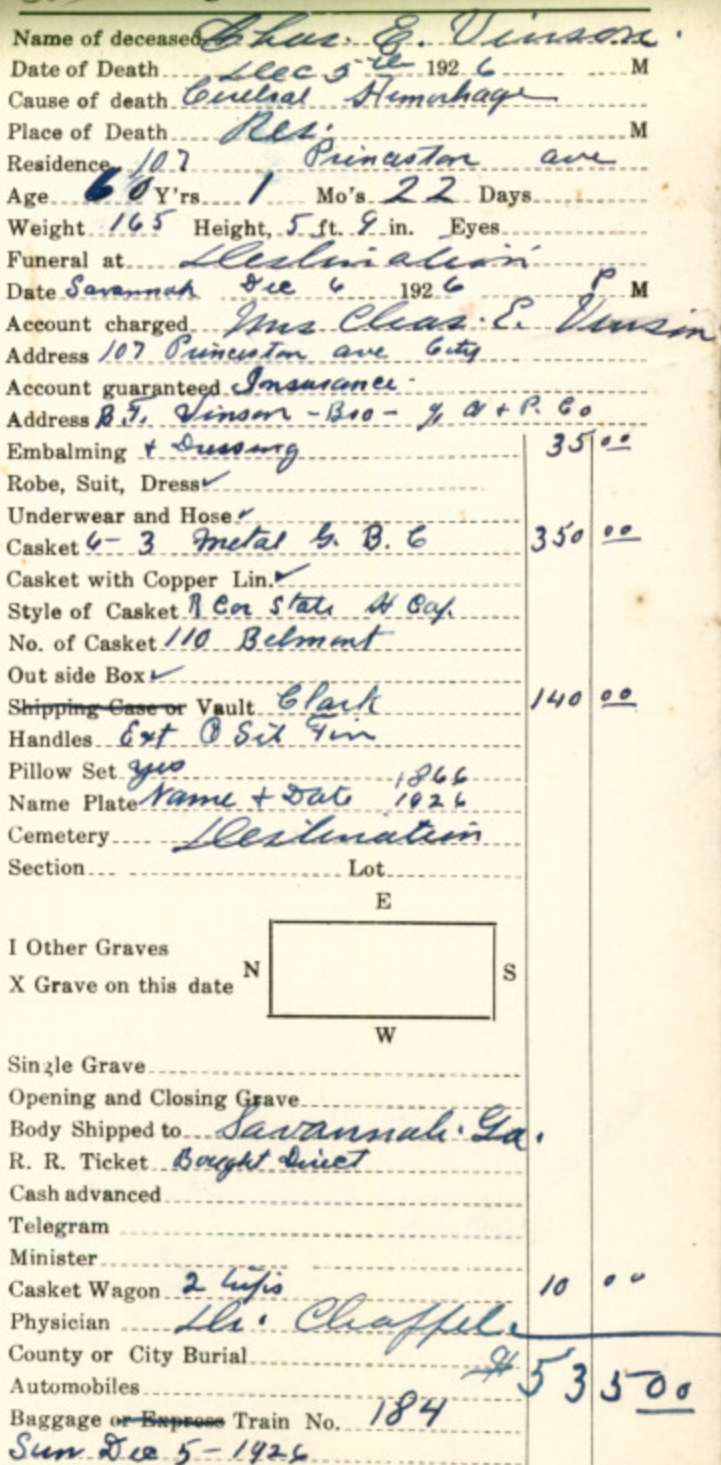 Name of deceased Chas. E. Vinson.
Date of Death Dec 5th 1926 M
Cause of death Cerebral Hemorhage
Place of Death Res. M
Residence 107 Princeston ave
Age 60 Y'rs 1 Mo's 22 Days
Weight 165 Height, 5 ft. 9 in. Eyes
Funeral at Destination
Date Savannah Dec 6 1926 P M
Account charged Mrs Chas. E. Vinson
Address 107 Princeston ave City
Account guaranteed Insurance.
Address B.F. Vinson - Bro - % A + P. Co
Embalming + Dressing 35 00
Robe, Suit, Dress ✓
Underwear and Hose ✓
Casket 6-3 Metal G. B. C 350 00
Casket with Copper Lin. ✓
Style of Casket R Cor State H Cap.
No. of Casket 110 Belmont
Out side Box ✓
Shipping Case or Vault Clark 140 00
Handles Ext O Sil Fin
Pillow Set yes 1866
Name Plate Name + Date 1926
Cemetery Destination
Section Lot
E
I Other Graves
N S
X Grave on this date
W
Single Grave
Opening and Closing Grave
Body Shipped to Savannah. Ga.
R. R. Ticket Bought Direct
Cash advanced
Telegram
Minister
Casket Wagon 2 trips 10 00
Physician Dr. Chaffel
County or City Burial
Automobiles # 535 00
Baggage or Express Train No. 184
Sun Dec 5 - 1926